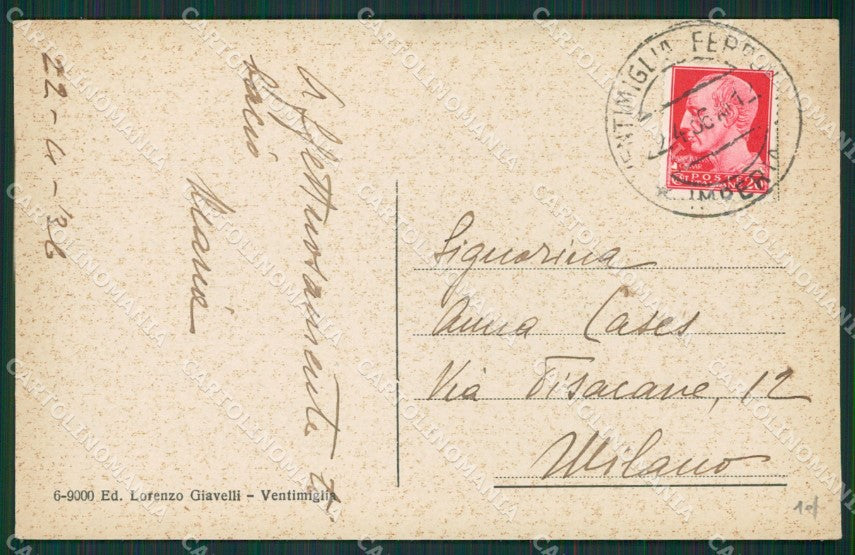 22-4-'36
Affettuosamente ti
bacio
Maria
VENTIMIGLIA FERR
IMPERIA
POSTE
Signorina
Anna Cases
Via Pisacane, 12
Milano
6-9000 Ed. Lorenzo Giavelli - Ventimiglia
CARTOLINOMANIA